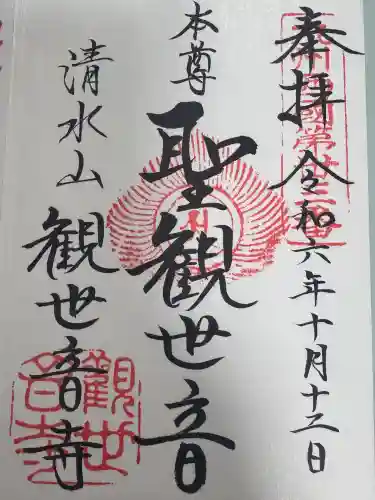 奉拝 令和六年十月十二日
本尊
聖観世音
清水山
観世音寺
観世音寺